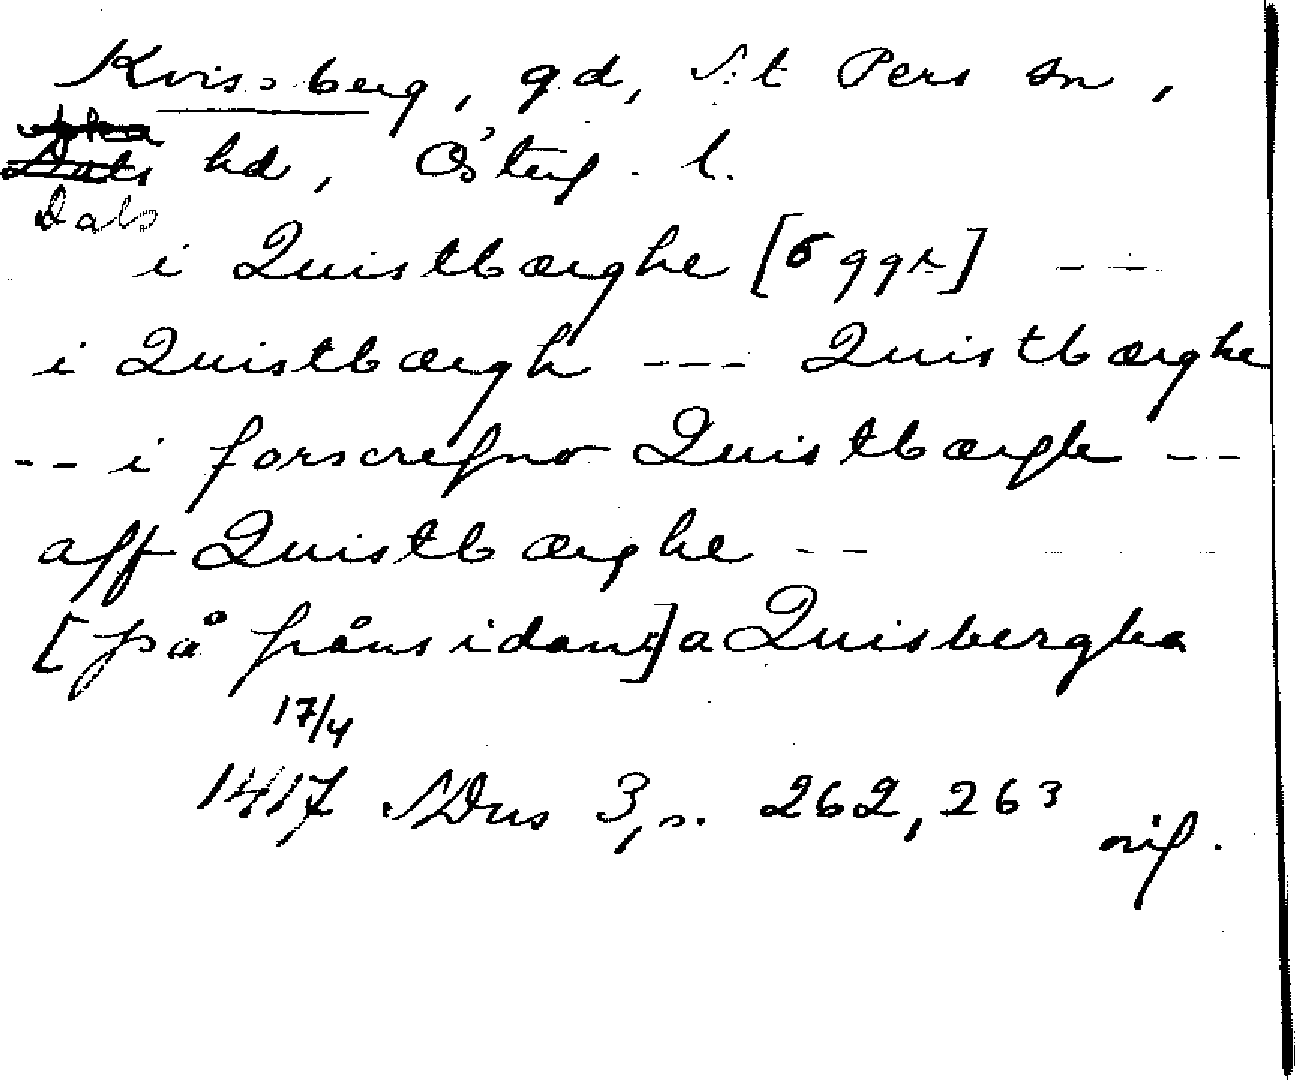 Kvissberg, gd, S:t Pers sn,
hd, Österg. l.
Dals
i Quistbærghe [6 ggr] - - -
i Quistbærgh - - - Quistbærghe
- - i forscrefno Quistbærghe - -
aff Quistbærghe - - -
[på frånsidan:] a Quisbergha
17/4
1417 SDns 3, s. 262, 263
orig.